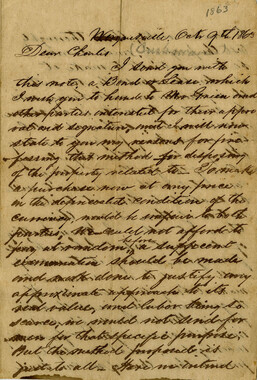 1863
Oct 9th 1863
Dear Charles
I send you with
this note, a Bond & Lease which
I wish you to hand to Mr
other parties interested for their appro
val and signature, and will now
state to you my reasons for pro
posing this method for disposing
of the property related to. To make
a purchase now at any price
in the indefinite condition of the
would be to both
parties. We could not afford to
pay at random, a sufficient
examination should be made
and work done to justify any
approximate approach to its
real value, and labor being so
scarce, we could not send for
men for that specific purpose;
But the method proposed is
just to all. have we intend